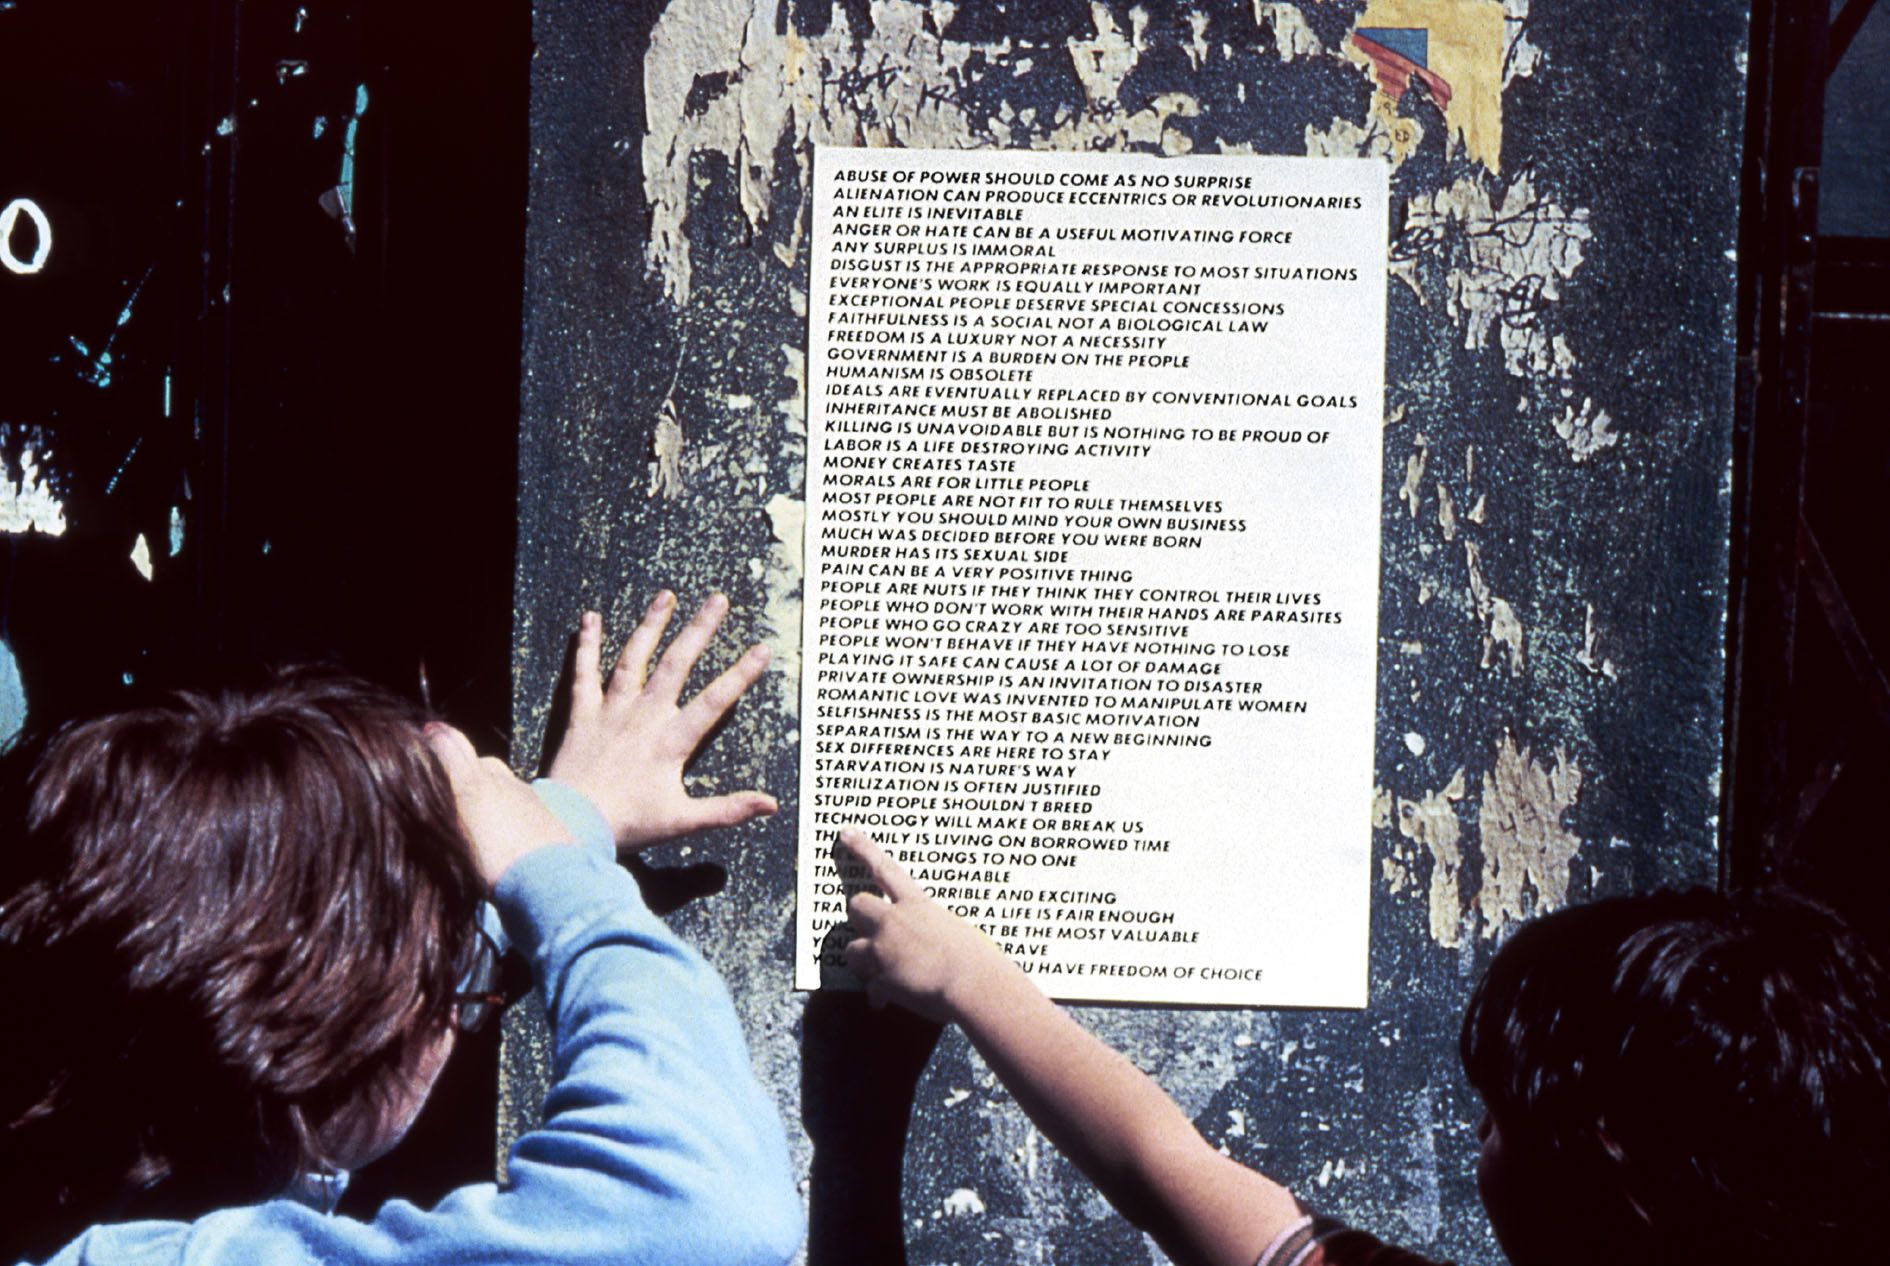 ABUSE OF POWER SHOULD COME AS NO SURPRISE
ALIENATION CAN PRODUCE ECCENTRICS OR REVOLUTIONARIES
AN ELITE IS INEVITABLE
ANGER OR HATE CAN BE A USEFUL MOTIVATING FORCE
ANY SURPLUS IS IMMORAL
DISGUST IS THE APPROPRIATE RESPONSE TO MOST SITUATIONS
EVERYONE'S WORK IS EQUALLY IMPORTANT
EXCEPTIONAL PEOPLE DESERVE SPECIAL CONCESSIONS
FAITHFULNESS IS A SOCIAL NOT A BIOLOGICAL LAW
FREEDOM IS A LUXURY NOT A NECESSITY
GOVERNMENT IS A BURDEN ON THE PEOPLE
HUMANISM IS OBSOLETE
IDEALS ARE EVENTUALLY REPLACED BY CONVENTIONAL GOALS
INHERITANCE MUST BE ABOLISHED
KILLING IS UNAVOIDABLE BUT IS NOTHING TO BE PROUD OF
LABOR IS A LIFE DESTROYING ACTIVITY
MONEY CREATES TASTE
MORALS ARE FOR LITTLE PEOPLE
MOST PEOPLE ARE NOT FIT TO RULE THEMSELVES
MOSTLY YOU SHOULD MIND YOUR OWN BUSINESS
MUCH WAS DECIDED BEFORE YOU WERE BORN
MURDER HAS ITS SEXUAL SIDE
PAIN CAN BE A VERY POSITIVE THING
PEOPLE ARE NUTS IF THEY THINK THEY CONTROL THEIR LIVES
PEOPLE WHO DON'T WORK WITH THEIR HANDS ARE PARASITES
PEOPLE WHO GO CRAZY ARE TOO SENSITIVE
PEOPLE WON'T BEHAVE IF THEY HAVE NOTHING TO LOSE
PLAYING IT SAFE CAN CAUSE A LOT OF DAMAGE
PRIVATE OWNERSHIP IS AN INVITATION TO DISASTER
ROMANTIC LOVE WAS INVENTED TO MANIPULATE WOMEN
SELFISHNESS IS THE MOST BASIC MOTIVATION
SEPARATISM IS THE WAY TO A NEW BEGINNING
SEX DIFFERENCES ARE HERE TO STAY
STARVATION IS NATURE'S WAY
STERILIZATION IS OFTEN JUSTIFIED
STUPID PEOPLE SHOULDN'T BREED
TECHNOLOGY WILL MAKE OR BREAK US
THE FAMILY IS LIVING ON BORROWED TIME
BELONGS TO NO ONE
LAUGHABLE
HORRIBLE AND EXCITING
FOR A LIFE IS FAIR ENOUGH
BE THE MOST VALUABLE
GRAVE
HAVE FREEDOM OF CHOICE